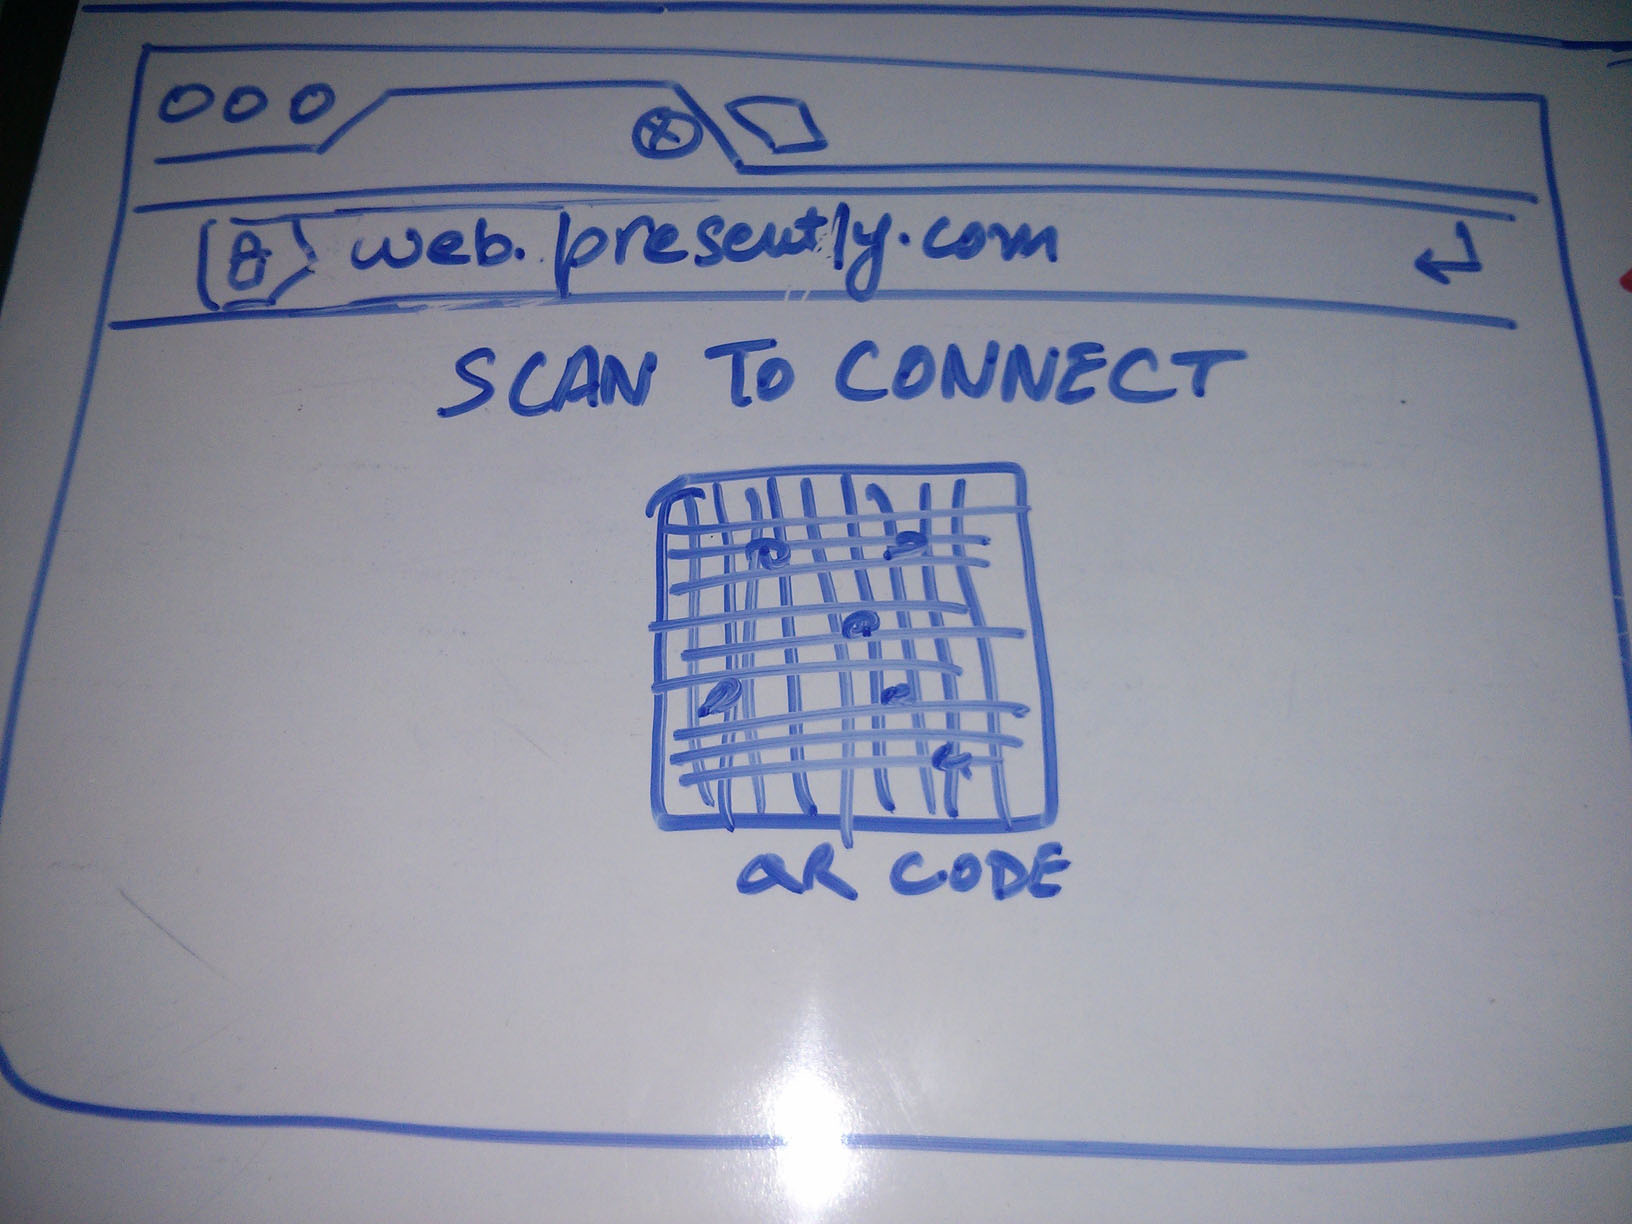 web.presently.com
SCAN TO CONNECT
QR CODE